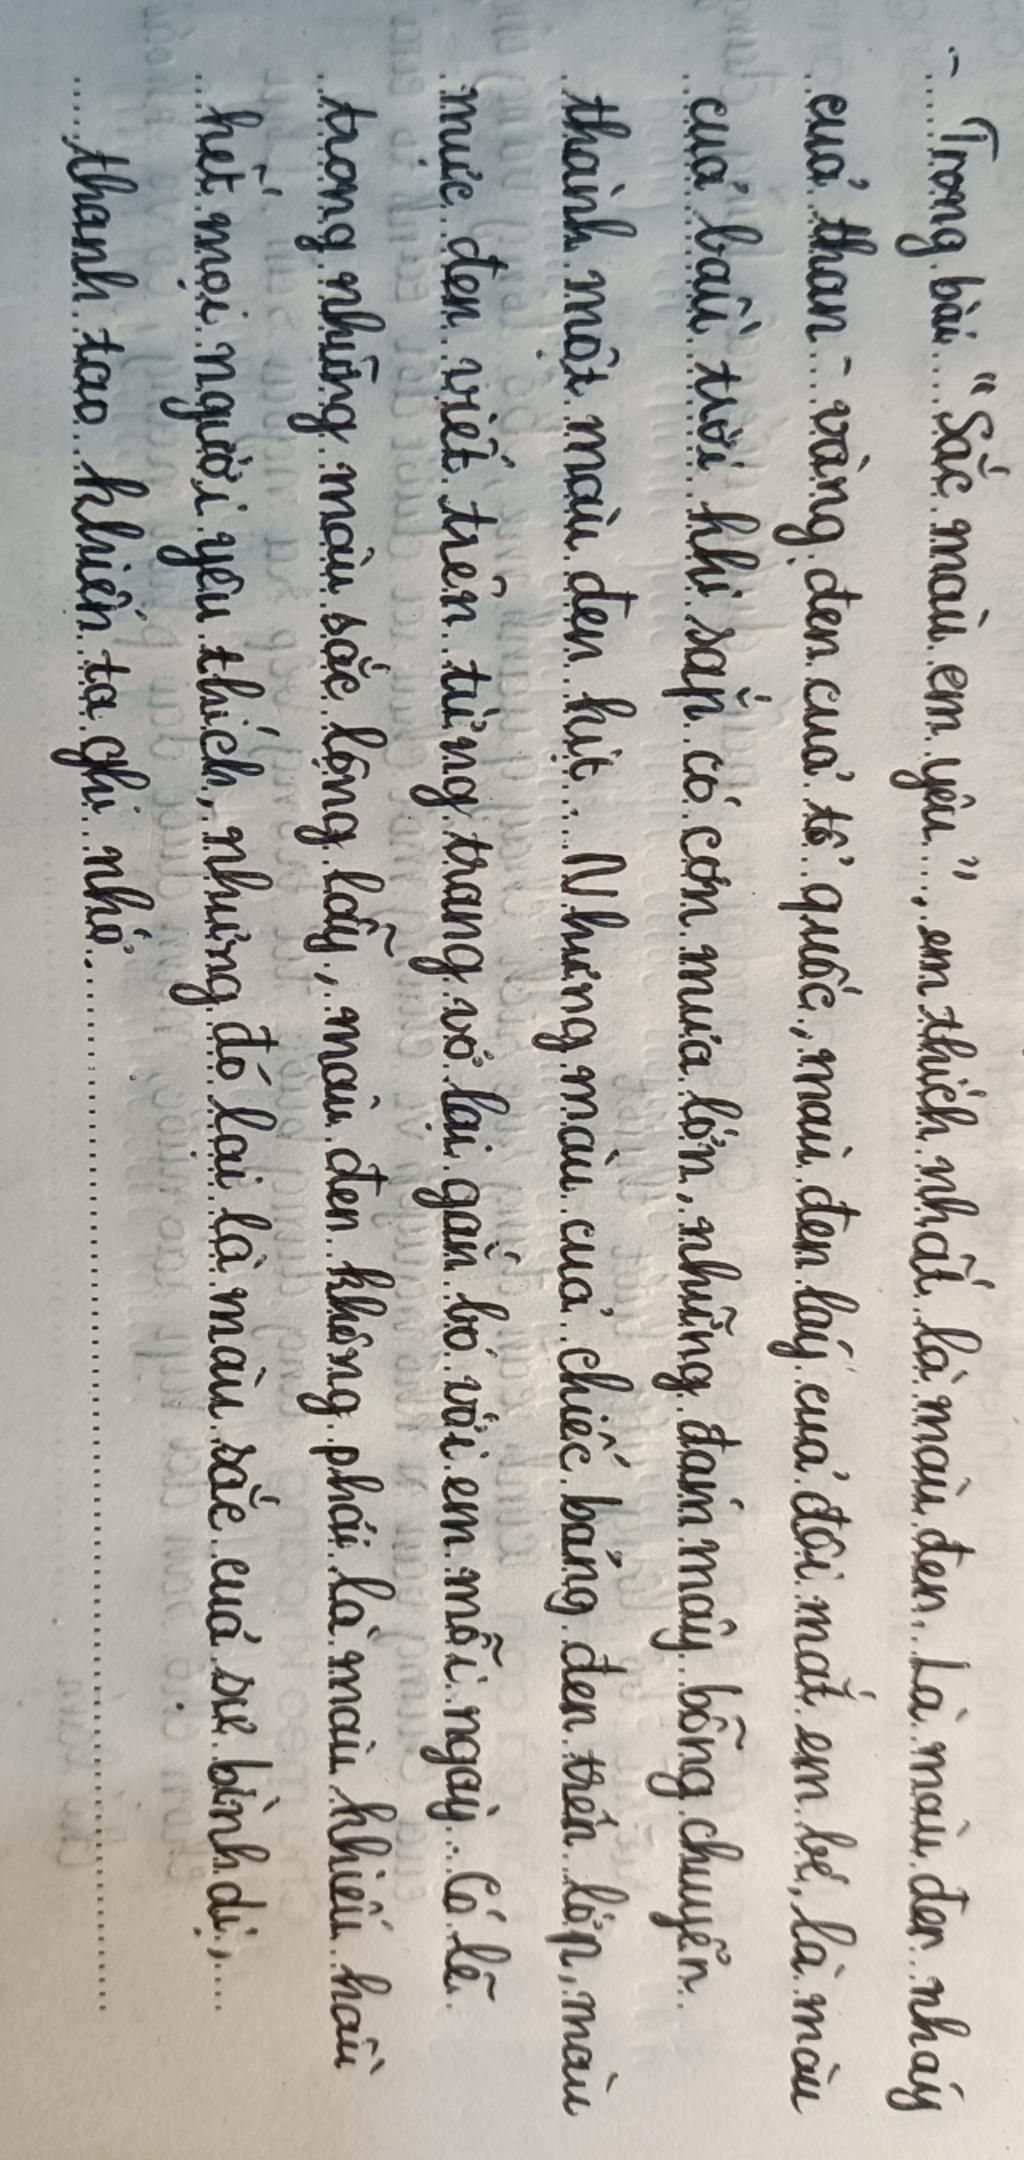 - Trong bài "Sắc màu em yêu", em thích nhất là màu đen. Là màu đen nháy
của than - vàng đen của tổ quốc, màu đen láy của đôi mắt em bé, là màu
của bầu trời khi sắp có cơn mưa lớn, những đám mây bỗng chuyển
thành một màu đen kịt. Nhưng màu của chiếc bảng đen trên lớp, màu
mực đen viết trên từng trang vở lại gắn bó với em mỗi ngày. Có lẽ
trong những màu sắc lộng lẫy, màu đen không phải là màu khiến hầu
hết mọi người yêu thích, nhưng đó lại là màu sắc của sự bình dị,
thanh tao khiến ta ghi nhớ.